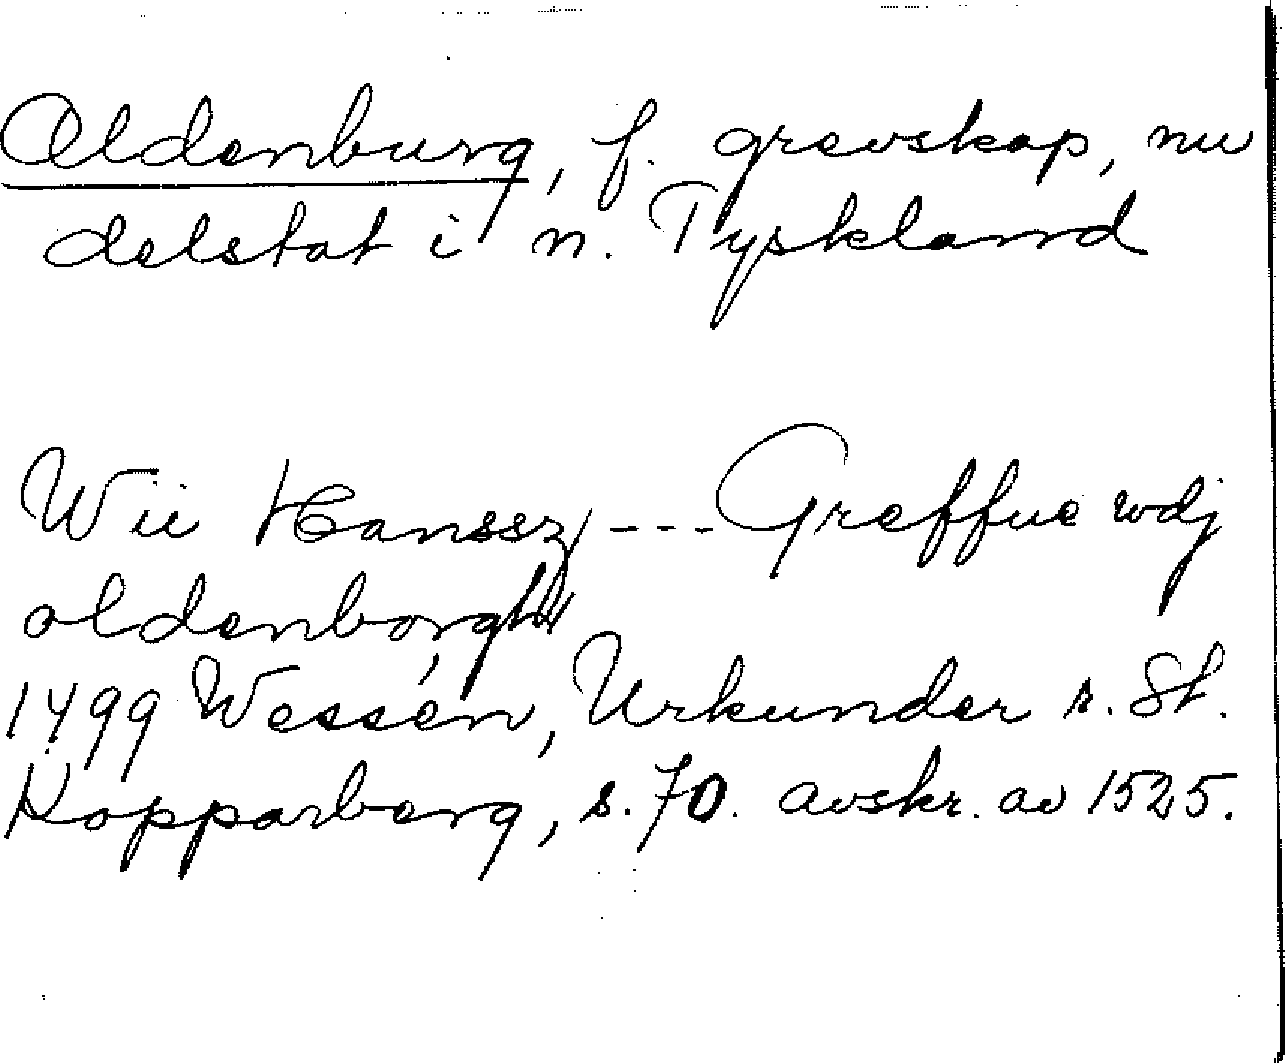 Oldenburg, f. grevskap, nu
delstat i n. Tyskland
Wii Hanssz --- Greffue wdj
oldenborgh
1499 Wessén, Urkunder r. St.
Kopparberg, s. 70. avskr. av 1525.